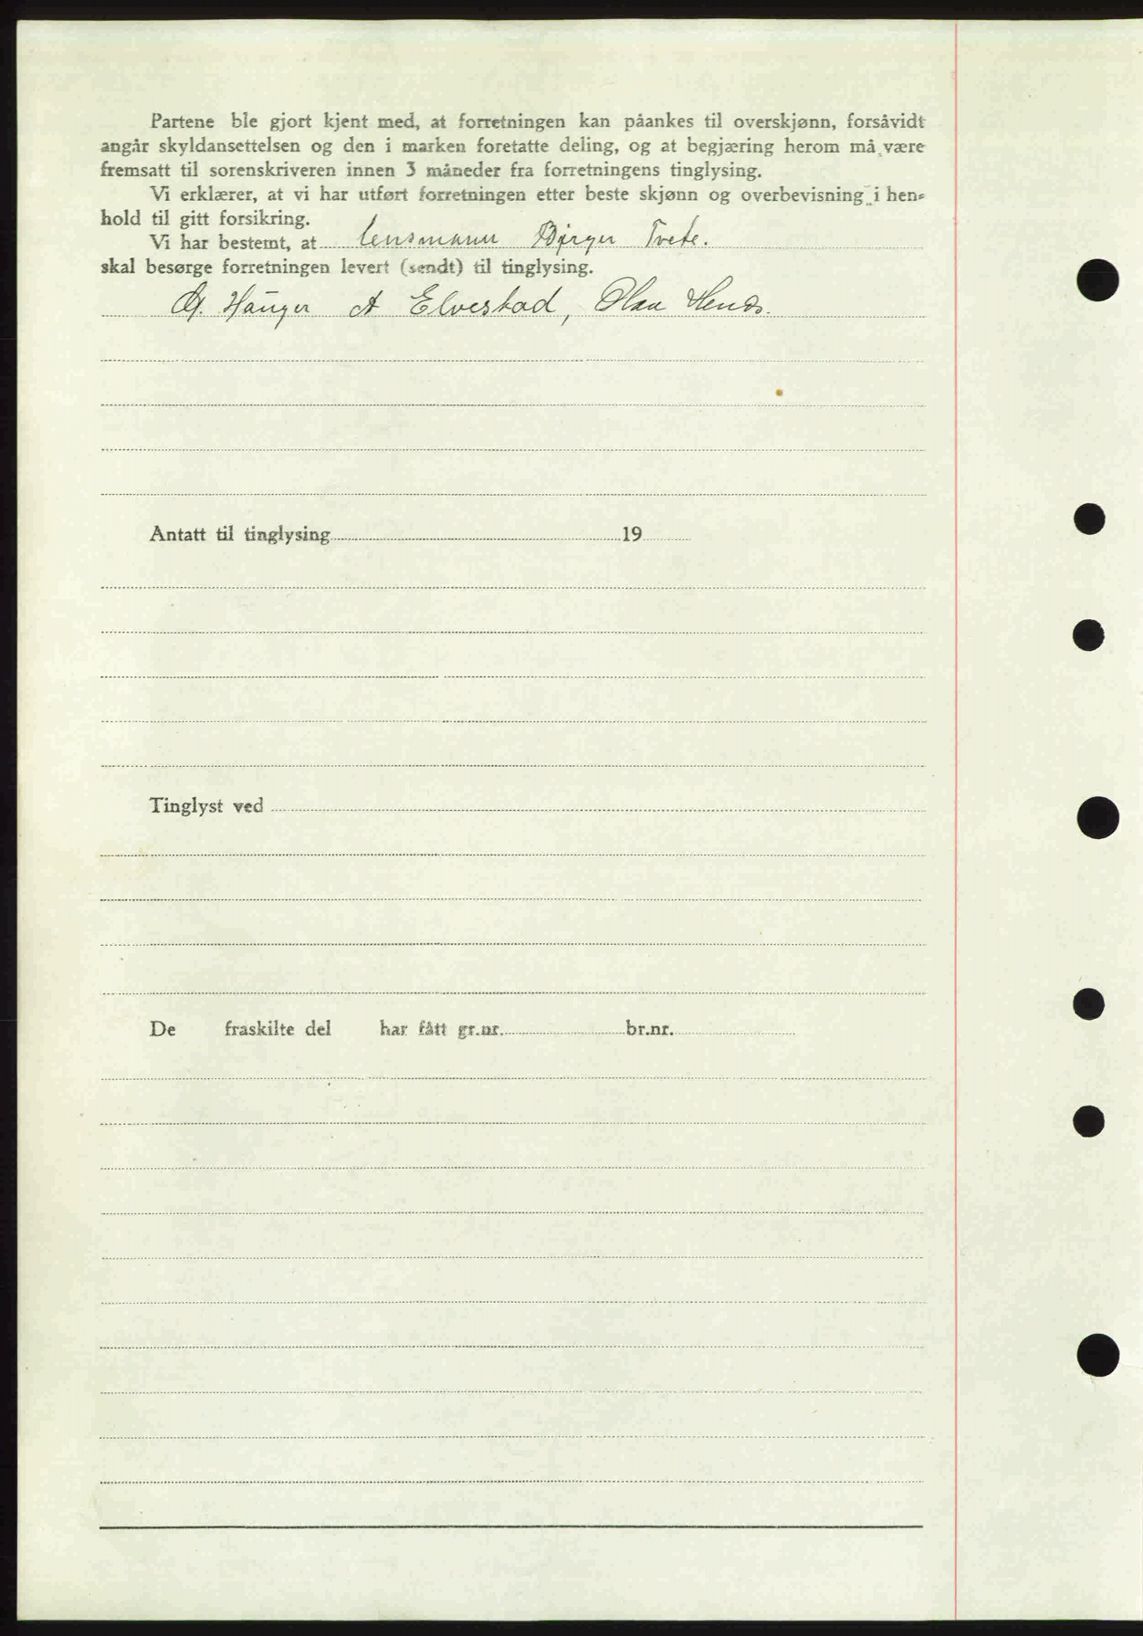 Partene ble gjort kjent med, at forretningen kan påankes til overskjønn, forsåvidt
angår skyldansettelsen og den i marken foretatte deling, og at begjæring herom må være
fremsatt til sorenskriveren innen 3 måneder fra forretningens tinglysing.
Vi erklærer, at vi har utført forretningen etter beste skjønn og overbevisning i hen-
hold til gitt forsikring.
Vi har bestemt, at lensmann Birger Tvete.
skal besørge forretningen levert (sendt) til tinglysing.
Hauger A Elvestad, Olaa
Antatt til tinglysing 19
Tinglyst ved
De fraskilte del har fått gr.nr. br.nr.